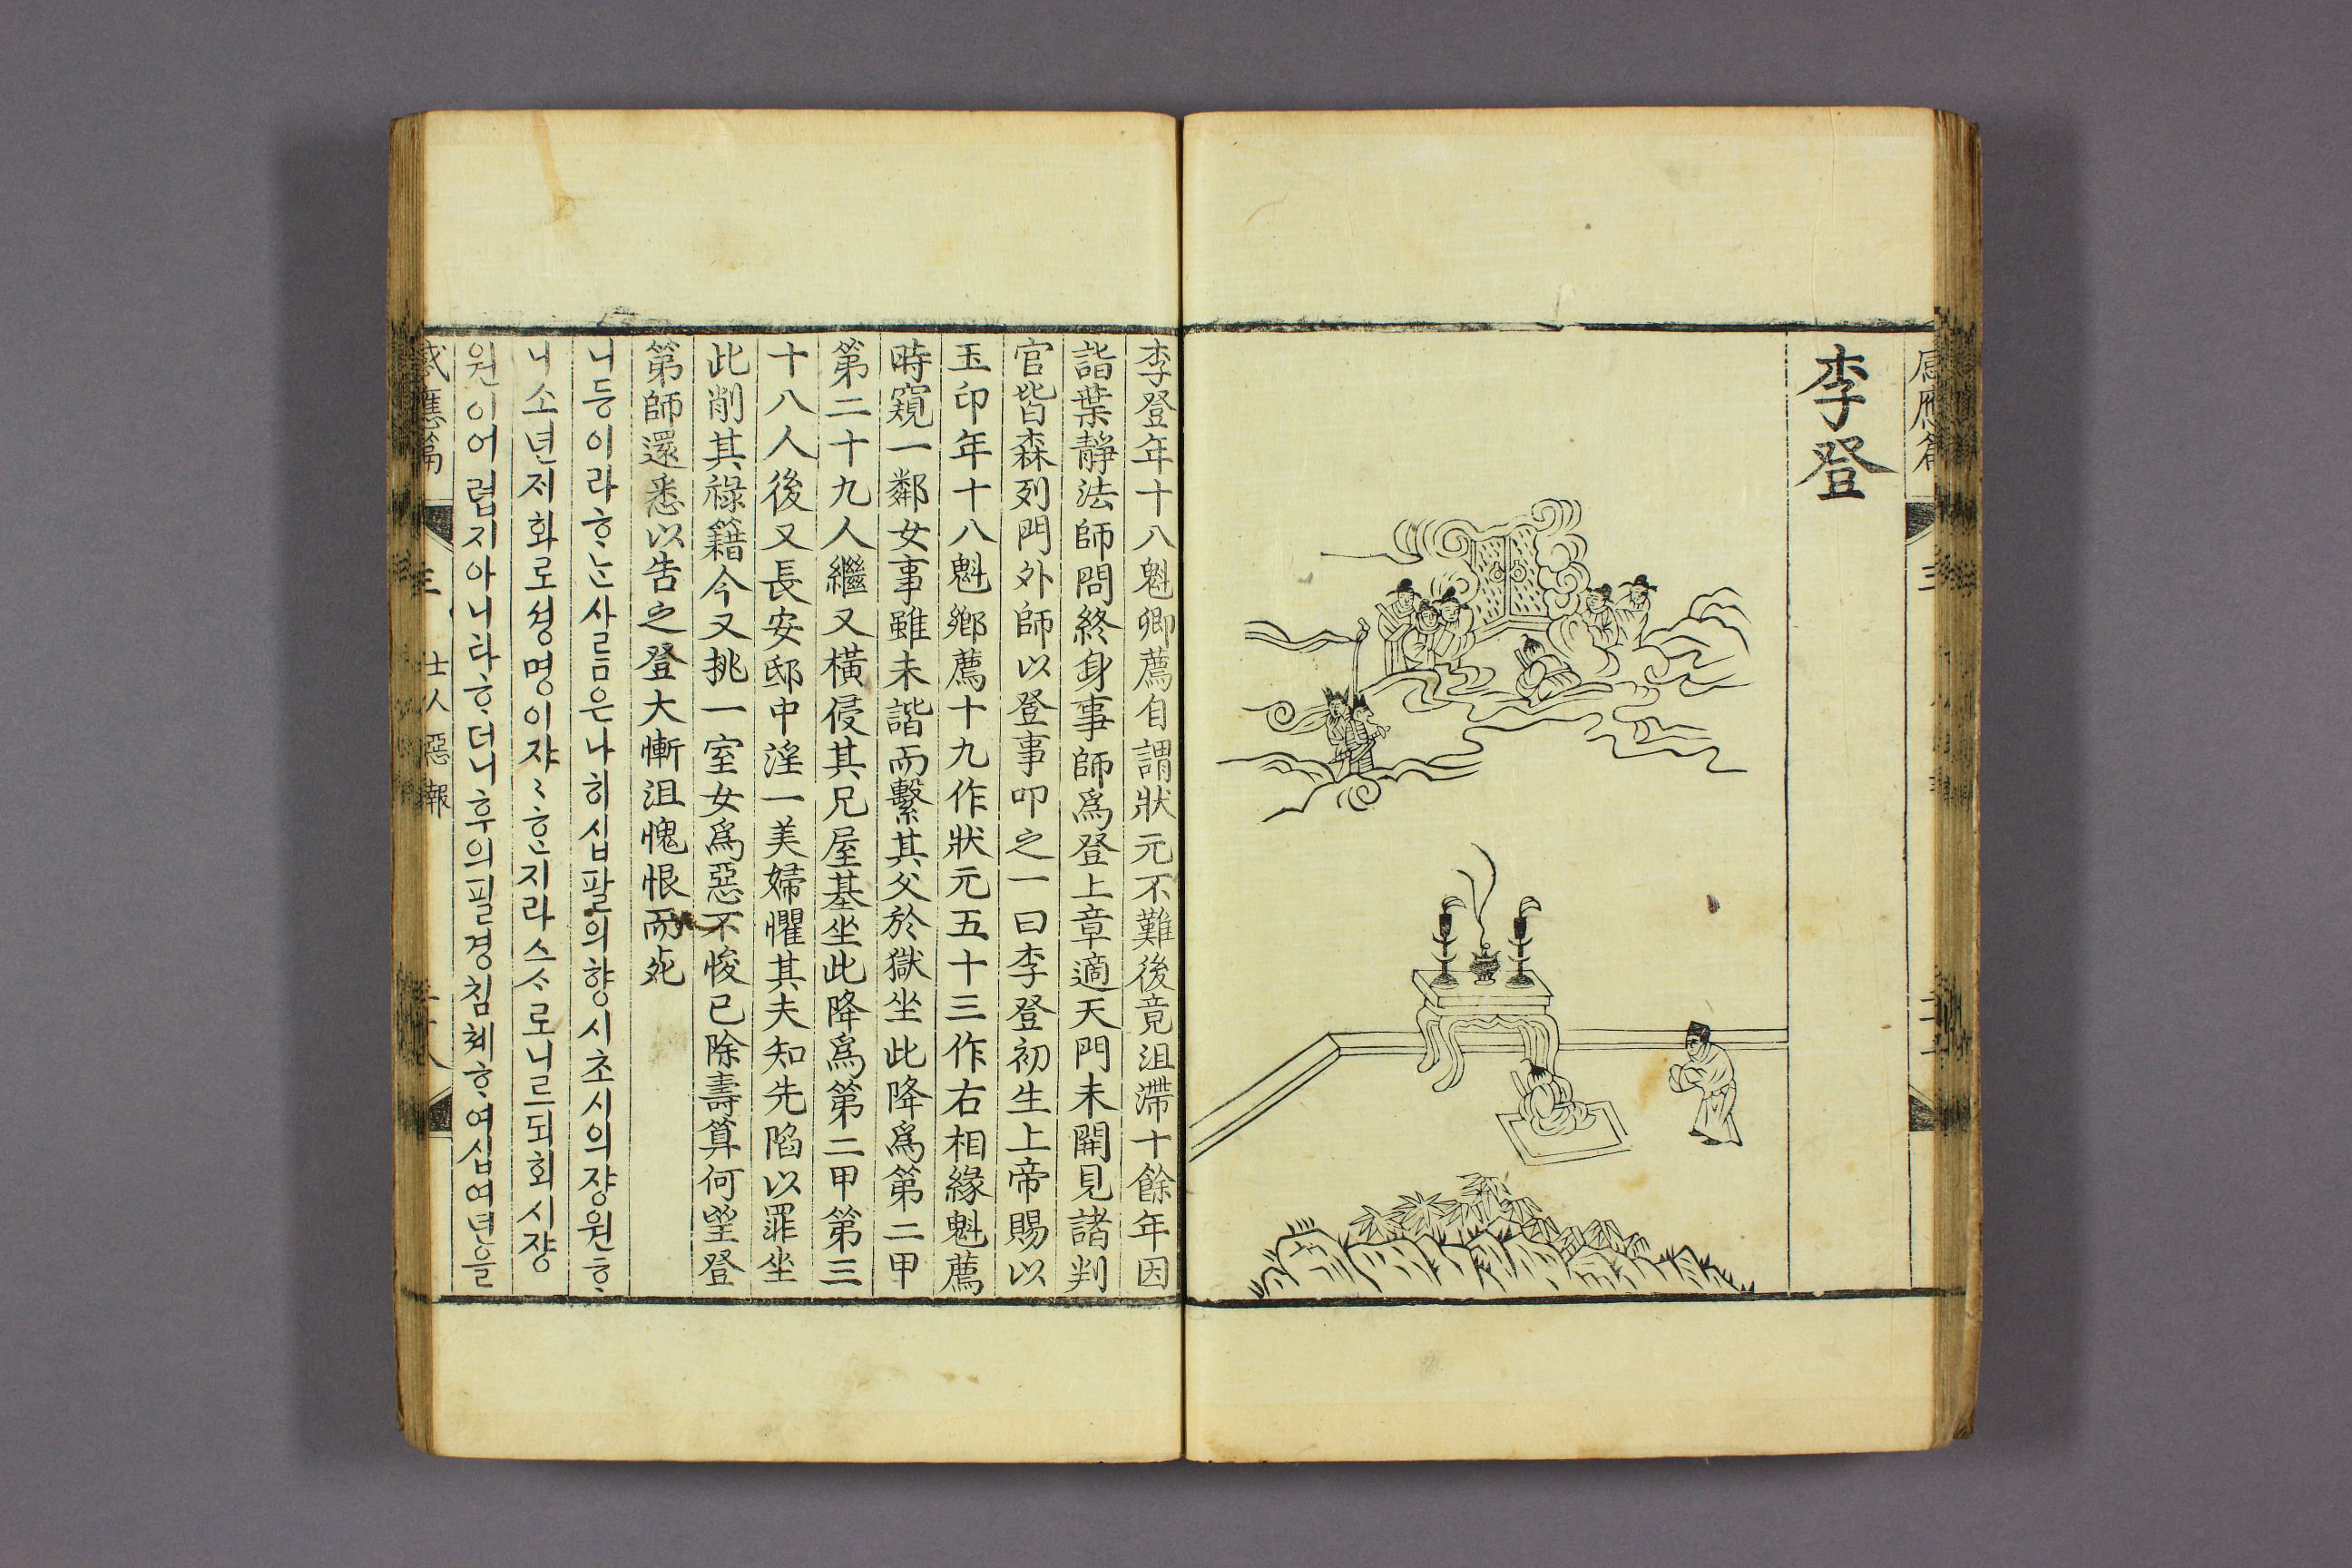 李登
李登年十八魁鄕薦自謂狀元不難後竟沮滯十餘年因
詣葉靜法師問終身事師爲登上章適天門未開見諸判
官皆森列門外師以登事叩之一曰李登初生上帝賜以
玉印年十八魁鄕薦十九作狀元五十三作右相緣魁薦
時窺一鄰女事雖未諧而繫其父於獄坐此降爲第二甲
第二十九人繼又橫侵其兄屋基坐此降爲第二甲第三
十八人後又長安邸中淫一美婦懼其夫知先陷以罪坐
此削其祿籍今又挑一室女爲惡不悛已除壽算何望登
第師還悉以告之登大慚沮愧恨而死
니등이라ᄒᆞᄂᆞᆫ사ᄅᆞᆷ은나히십팔의향시초시의쟝원ᄒᆞ
니소년저화로셩명이쟈〻ᄒᆞᆫ지라스ᄉᆞ로니르되회시쟝
원이어렵지아니타ᄒᆞ더니후의필경침쳬ᄒᆞ여십여년을
感應篇 三 士人惡報